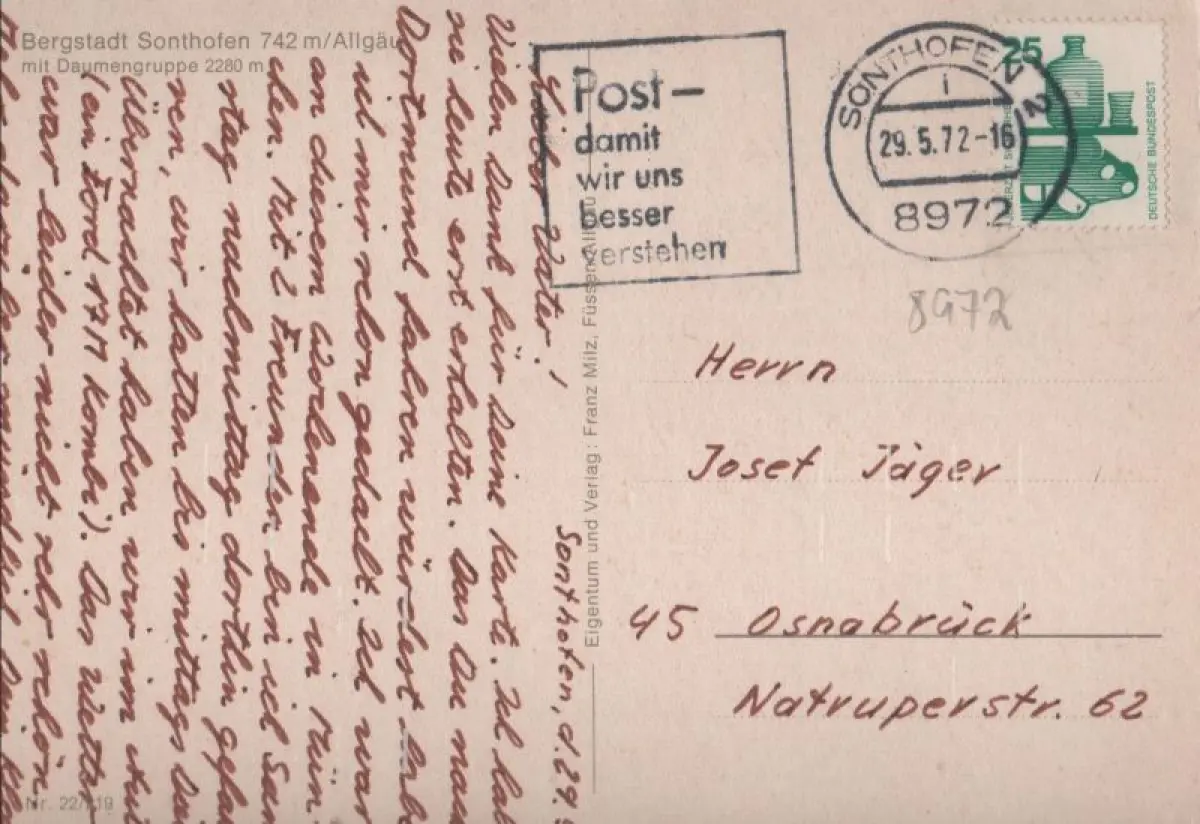 Bergstadt Sonthofen 742 m/Allgäu
mit Daumengruppe 2280 m
Post–
damit
wir uns
besser
verstehen
SONTHOFEN 2
i
29.5.72-16
8972
25
DEUTSCHE BUNDESPOST
8972
Herrn
Josef Jäger
45 Osnabrück
Natruperstr. 62
Eigentum und Verlag: Franz Milz, Füssen/Allgäu
Sonthofen, d. 29.
Lieber Vater!
Vielen Dank für Deine Karte. Ich hab
sie heute erst erhalten. Das Du nach
Dortmund fahren würdest hab
ich mir schon gedacht. Ich war
an diesem Wochenende in Mün
chen. Mit 2 Freunden bin ich Sam
stag nachmittag dorthin gefah
ren, wir hatten bis mittags Die
Übernachtet haben wir im Aut
(ein Ford 17M Kombi). Das Wetter
war leider nicht sehr schön
Nr. 22/119